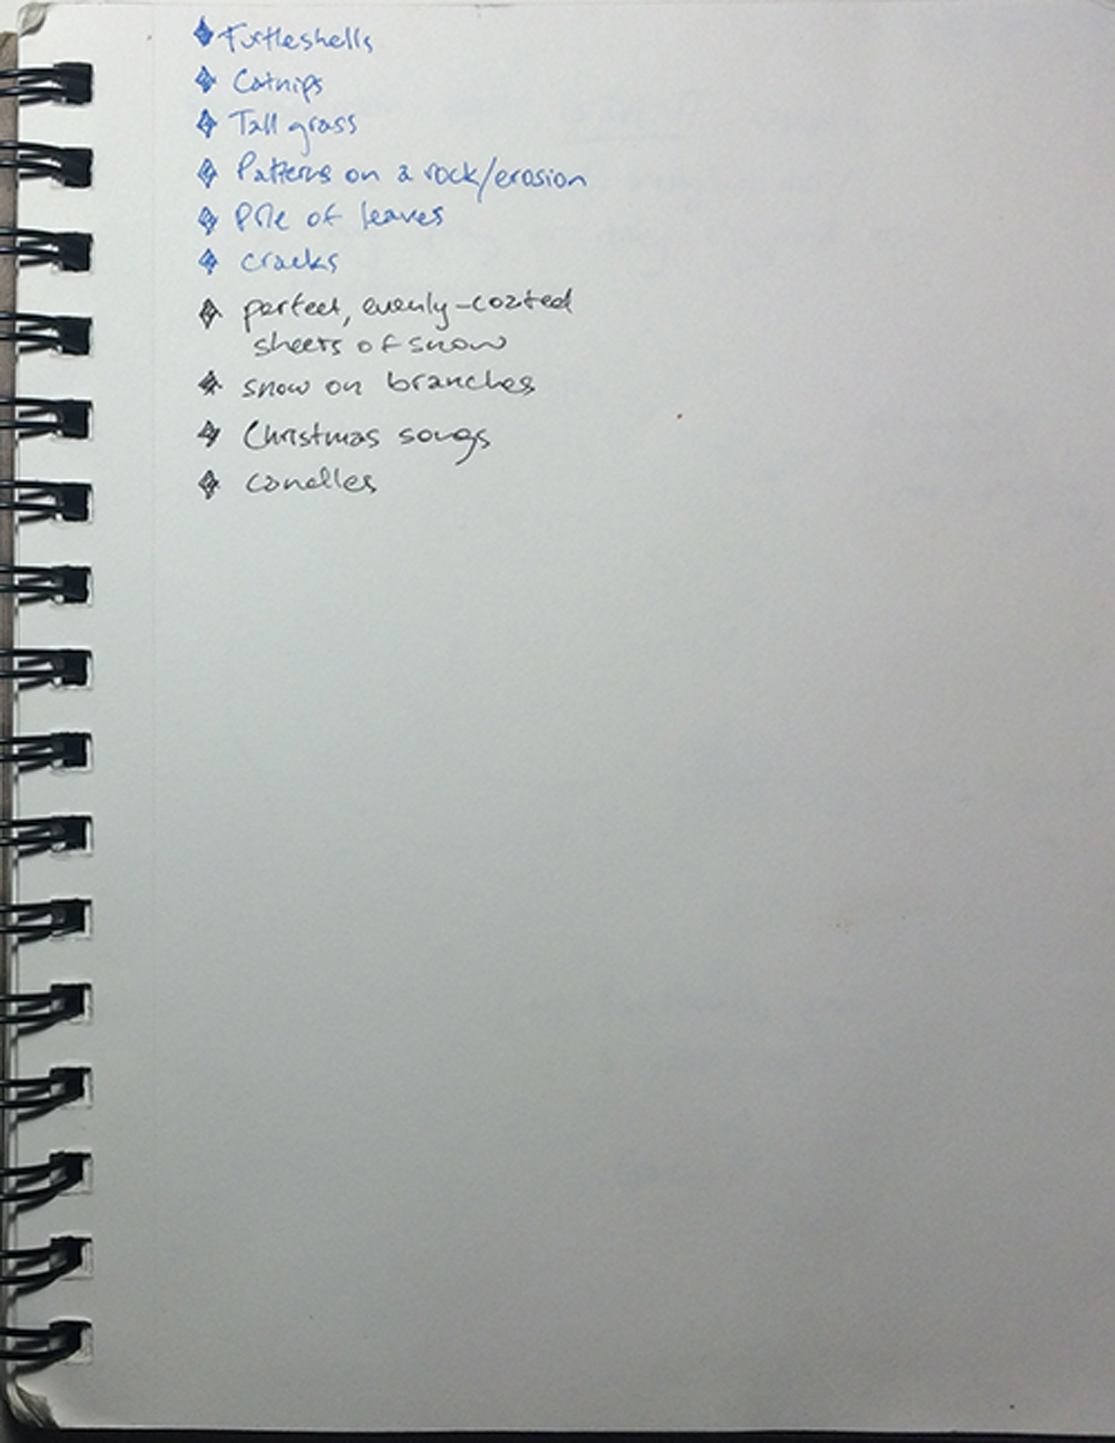 Turtleshells
Catnips
Tall grass
Patterns on a rock/erosion
Pile of leaves
cracks
perfect, evenly-coated
sheets of snow
snow on branches
Christmas songs
candles